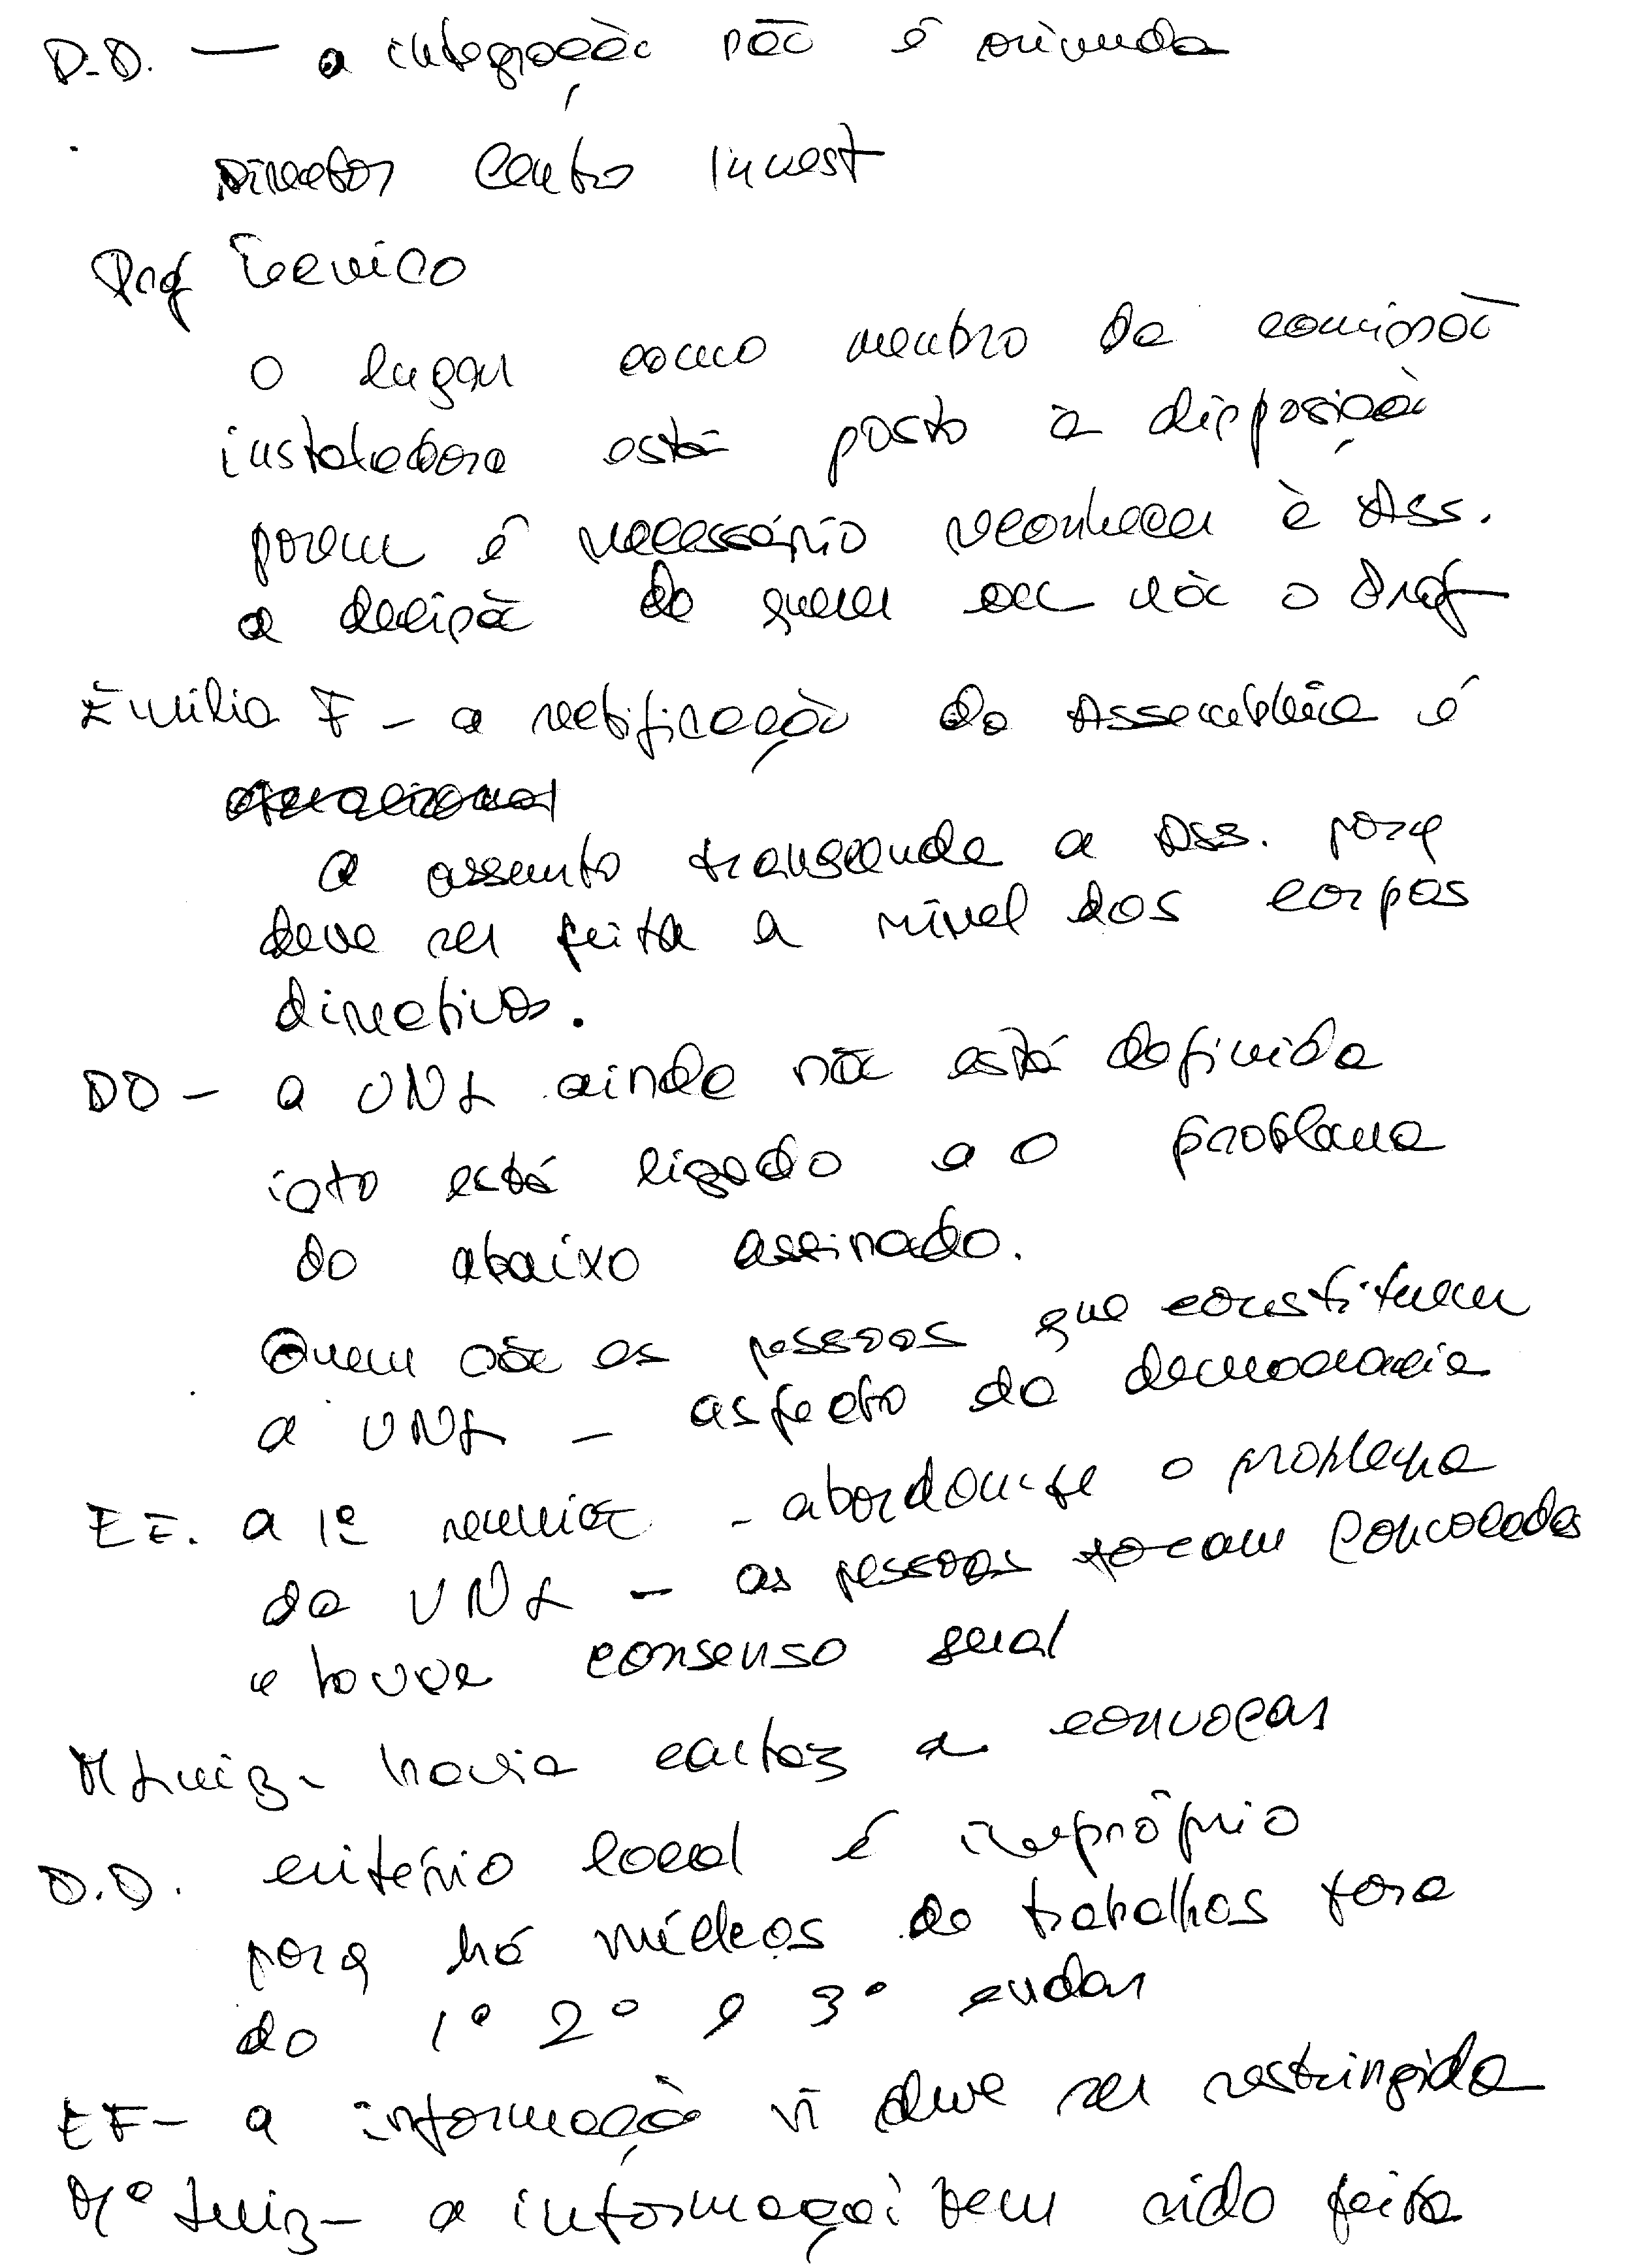 D.D. — a integração não é oriunda
Director Centro Invest
Prof
O lugar como membro da comissão
instaladora está posto à disposição
porem é necessário reconhecer à Ass.
a decisão de querer ou não o Prof
Emília F - a rectificação da Assembleia é
O assunto transcende a Ass. porq
deve ser feita a nível dos corpos
directivos.
DD - a UNL ainda não está definida
isto está ligado ao problema
do abaixo assinado.
Quem são as pessoas que constituem
a UNL - aspecto da democracia
EF. a 1ª reunião - abordou-se o problema
da UNL - as pessoas foram convocadas
e houve consenso geral
M Luiz - havia cartaz a convocar
D.D. critério local é impróprio
porq há núcleos de trabalhos fora
do 1º 2º e 3º andar
EF - a informação ñ deve ser restringida
Mª Luiz - a informação tem sido feita